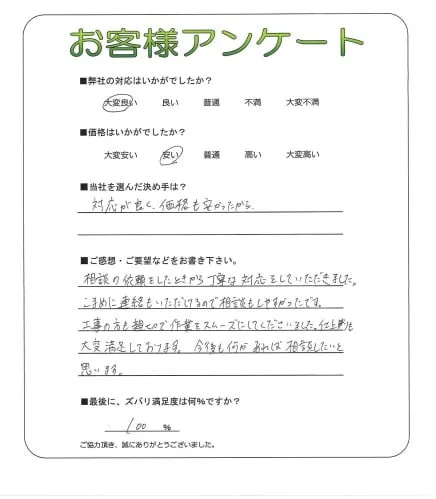 お客様アンケート
■弊社の対応はいかがでしたか？
大変良い 良い 普通 不満 大変不満
■価格はいかがでしたか？
大変安い 安い 普通 高い 大変高い
■当社を選んだ決め手は？
対応が良く、価格も安かったから。
■ご感想・ご要望などをお書き下さい。
相談の依頼をしたときから丁寧な対応をしていただきました。
こまめに連絡もいただけるので相談もしやすかったです。
工事の方も親切で作業をスムーズにしてくださいました。仕上がりも
大変満足しております。今後も何かあれば相談したいと
思います。
■最後に、ズバリ満足度は何%ですか？
100 %
ご協力頂き、誠にありがとうございました。